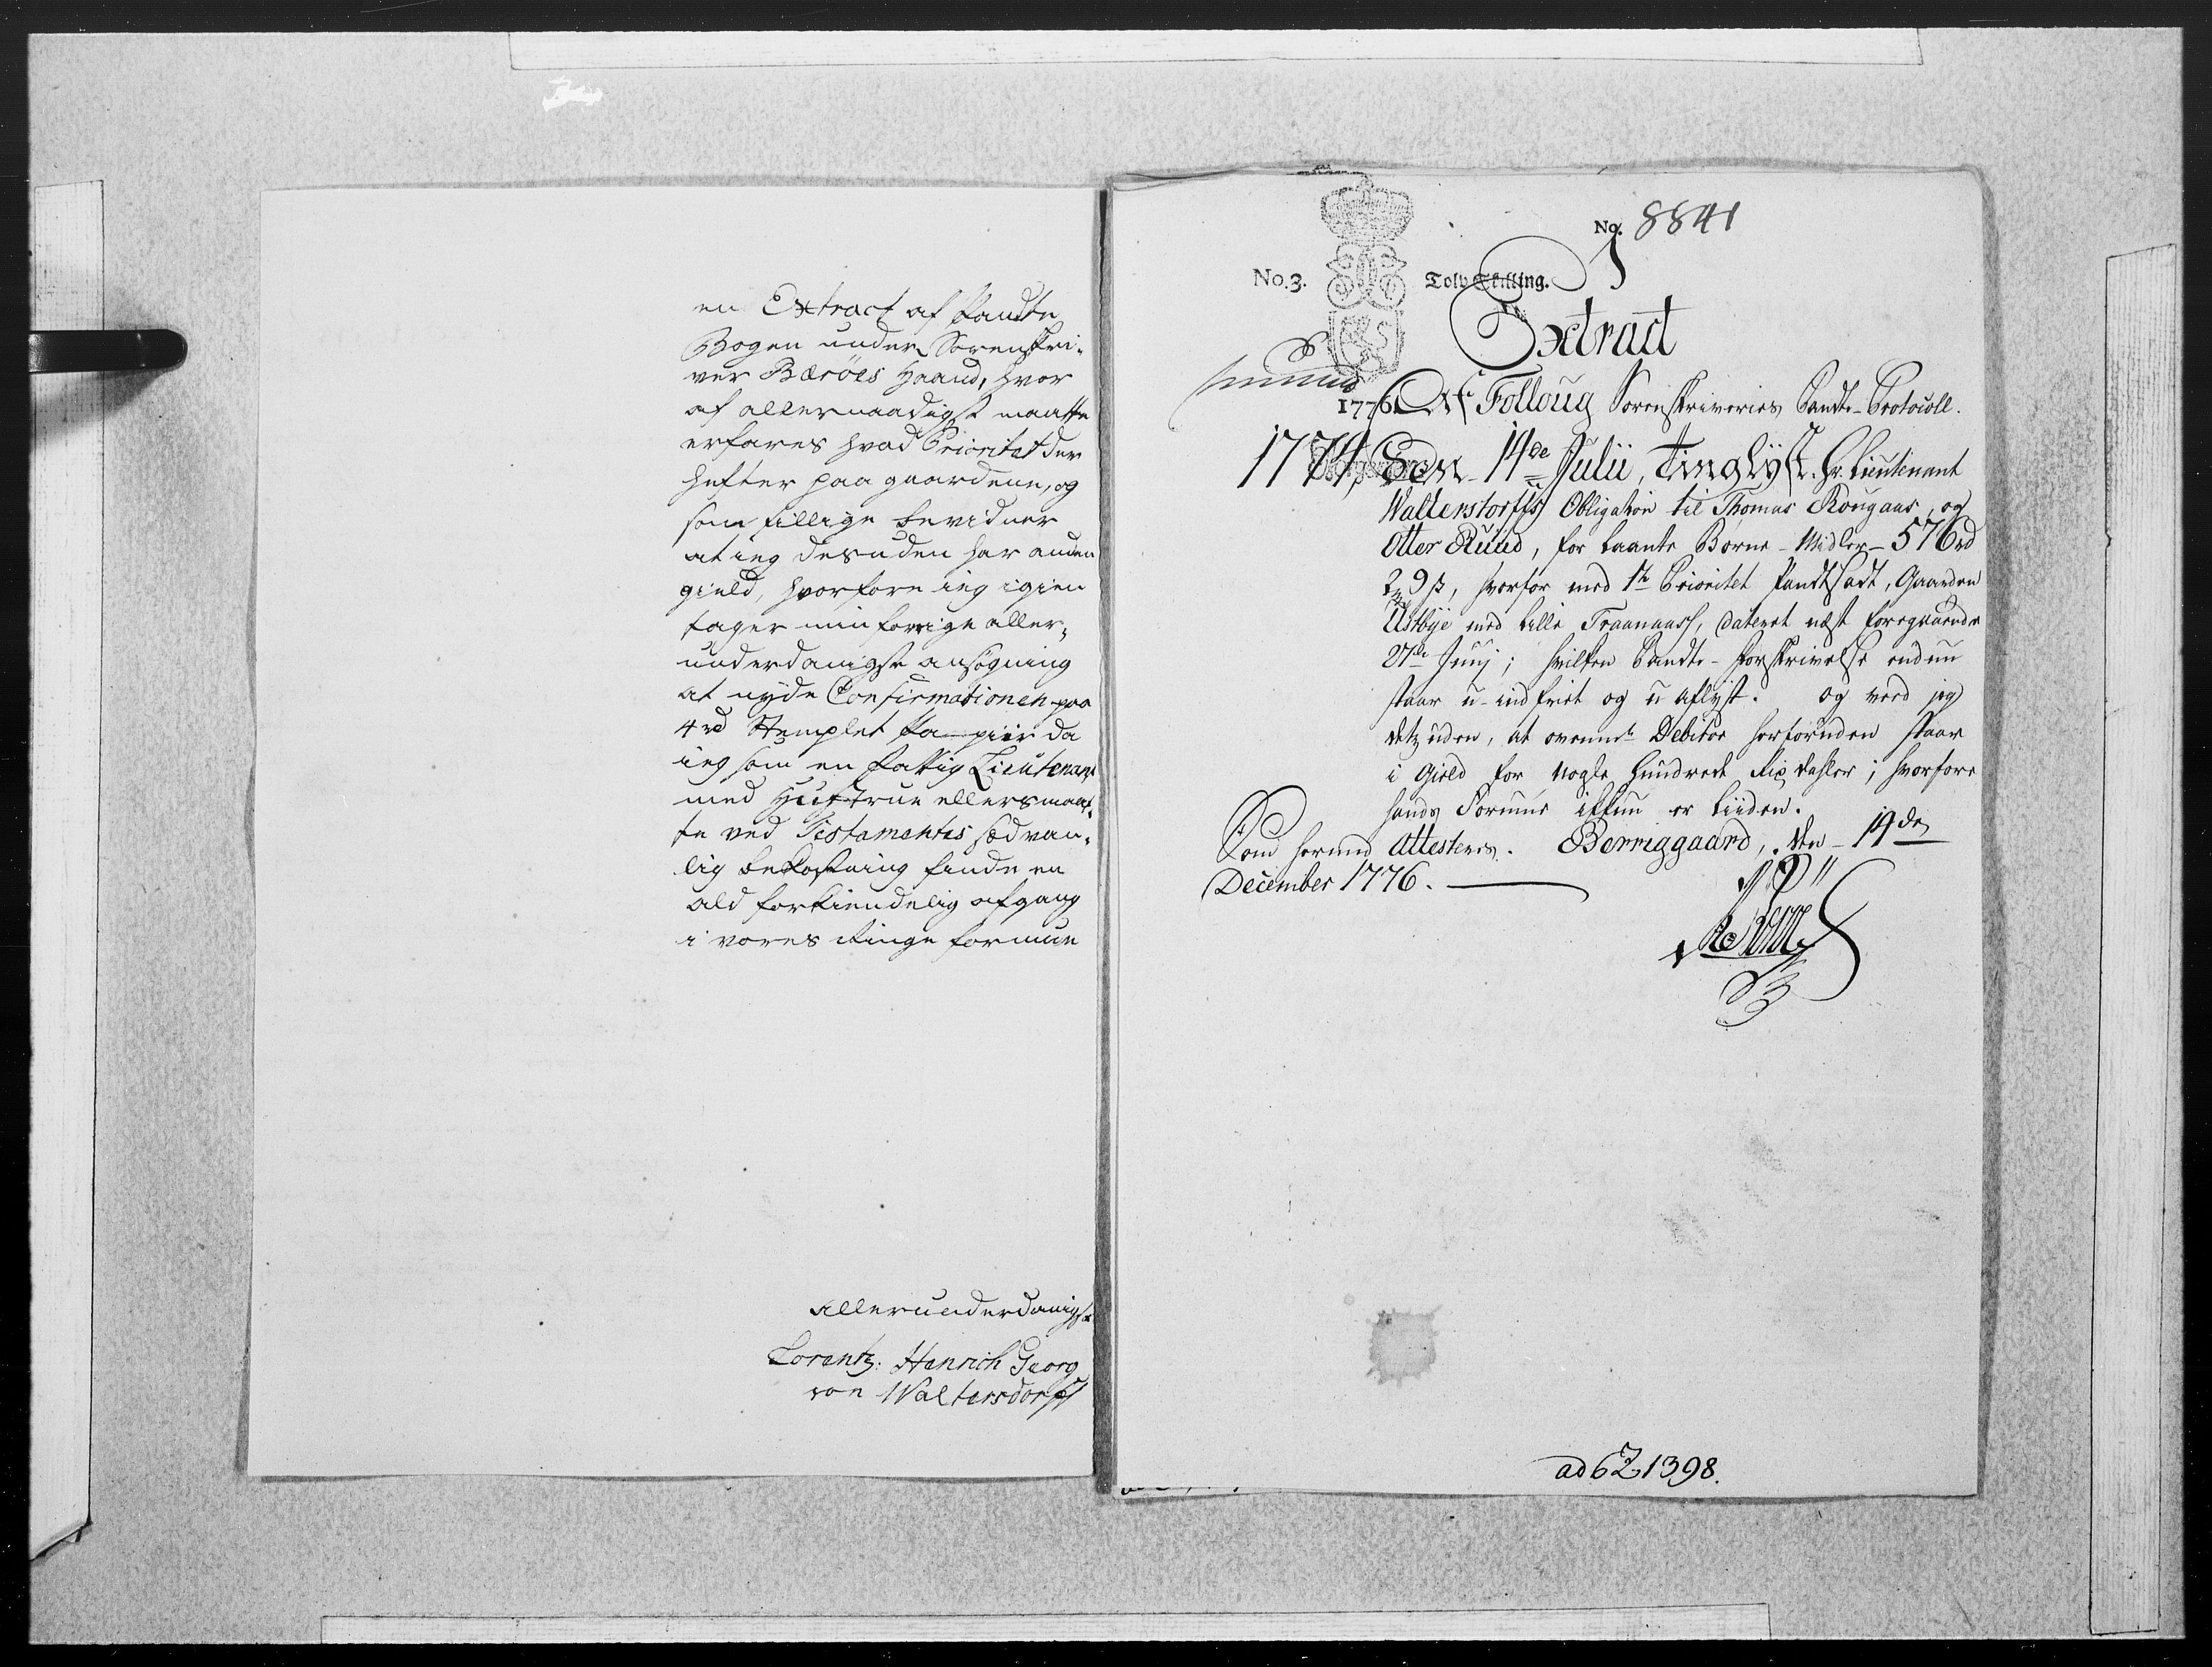 en Extract af Pandte
Bogen under Sorenskri-
ver Bæröes Haand, hvor
af allernaadigst maatte
erfares hvad Prioritet der
hefter paa gaardene, og
som tillige bevidner
at ieg desuden har anden
gield, hvorfore ieg igien
tager min forrige aller-
underdanigste ansögning
at nyde Confirmationen paa
4 rd Stemplet Papiir da
ieg som en fattig Lieutenant
med Hustrue ellers maat-
te ved Testamentes sædvan-
lig bekostning finde en
ald forkiendelig afgang
i vores Ringe formue
allerunderdanigst
Lorentz Henrich Georg
von Waltersdorff
No. 8841
No. 3. Tolv Skilling.
Extract
1776. Af Folloug Sorenskriveries Pandte-Protocoll.
1774, Den 14de Julii, tinglyst Hr. Lieutenant
Walterstorffs Obligation til Thomas Rougaas, og
Otter Ruud, for laante Börne-Midler 576 rd
2 9 s, hvorfor med 1te Prioritet Pandtsadt, Gaarden
Ustbye med lille Fraanaass, dateret næst foregaaende
27de Junj; hvilken Pandte-forskrivelse endnu
staar u-indfriet og u aflyst. og veed jeg
detzuden, at ovennte Debitor herforuden staar
i Gield for nogle hundrede Rixdahler; hvorfore
hands Formue ikkun er liiden.
Som herved Attesteres. Berriggaard, den 14de
December 1776.
ad 6Z1398.